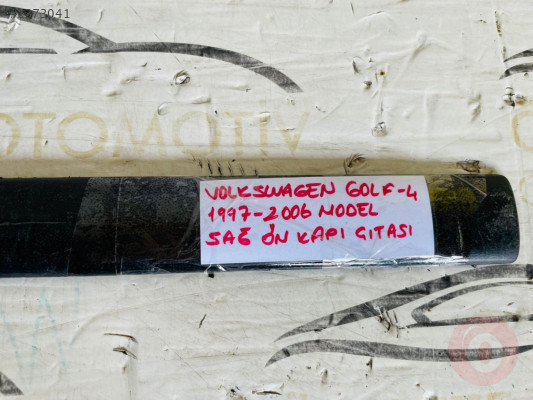 OTOMOTİV
VOLKSWAGEN GOLF-4
1997-2006 MODEL
SAĞ ÖN KAPI ÇITASI